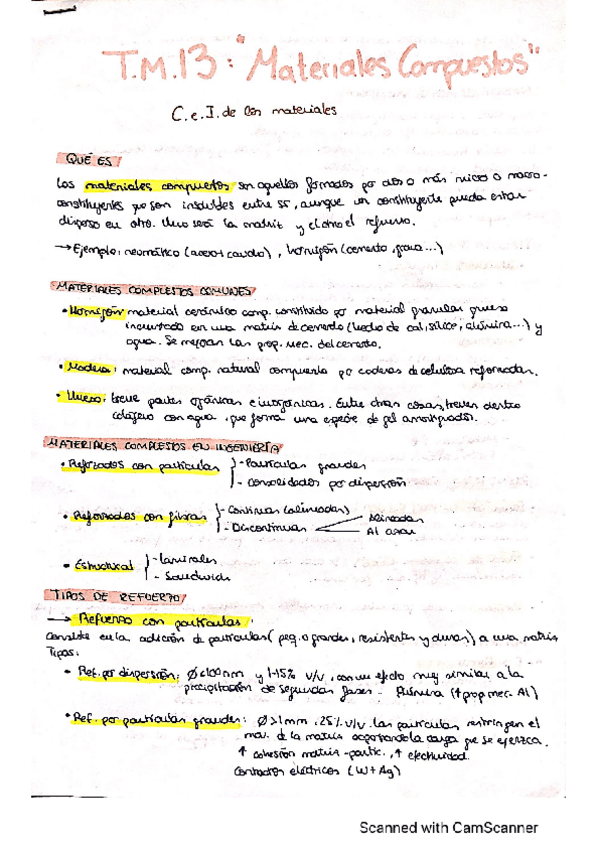 T.M.13: "Materiales Compuestos"
C. e I. de los materiales
QUÉ ES
Los materiales compuestos son aquellos formados por dos o más micro o macro-
constituyentes que son insolubles entre sí, aunque un constituyente pueda estar
disperso en otro. Uno será la matriz y el otro el refuerzo.
→ Ejemplo: neumático (acero + caucho), hormigón (cemento, grava...)
MATERIALES COMPUESTOS COMUNES
• Hormigón material cerámico comp. constituido por material granular grueso
incrustado en una matriz de cemento (hecho de cal, sílice, alúmina...) y
agua. Se mejoran las prop. mec. del cemento.
• Madera: material comp. natural compuesto por cadenas de celulosa reforzadas.
• Hueso: tiene partes orgánicas e inorgánicas. Entre otras cosas, tienen dentro
colágeno con agua, que forma una especie de gel amortiguador.
MATERIALES COMPUESTOS EN INGENIERÍA
• Reforzados con partículas } - Partículas grandes
- Consolidados por dispersión
• Reforzados con fibras { - Continuas (alineadas)
- Discontinuas Alineadas
Al azar
• Estructural } - Laminales
- Sandwich
TIPOS DE REFUERZO
→ Refuerzo con partículas:
Consiste en la adición de partículas (peq. o grandes, resistentes y duras) a una matriz
Tipos:
• Ref. por dispersión: Ø<100nm y 1-15% v/v, con un efecto muy similar a la
precipitación de segundas fases - Alúmina (↑ prop mec. Al)
• Ref. por partículas grandes: Ø>1mm, 25% v/v. Las partículas restringen el
mov. de la matriz soportando la carga que se ejerza.
↑ cohesión matriz-partíc., ↑ efectividad.
Contactos eléctricos (W + Ag)
Scanned with CamScanner